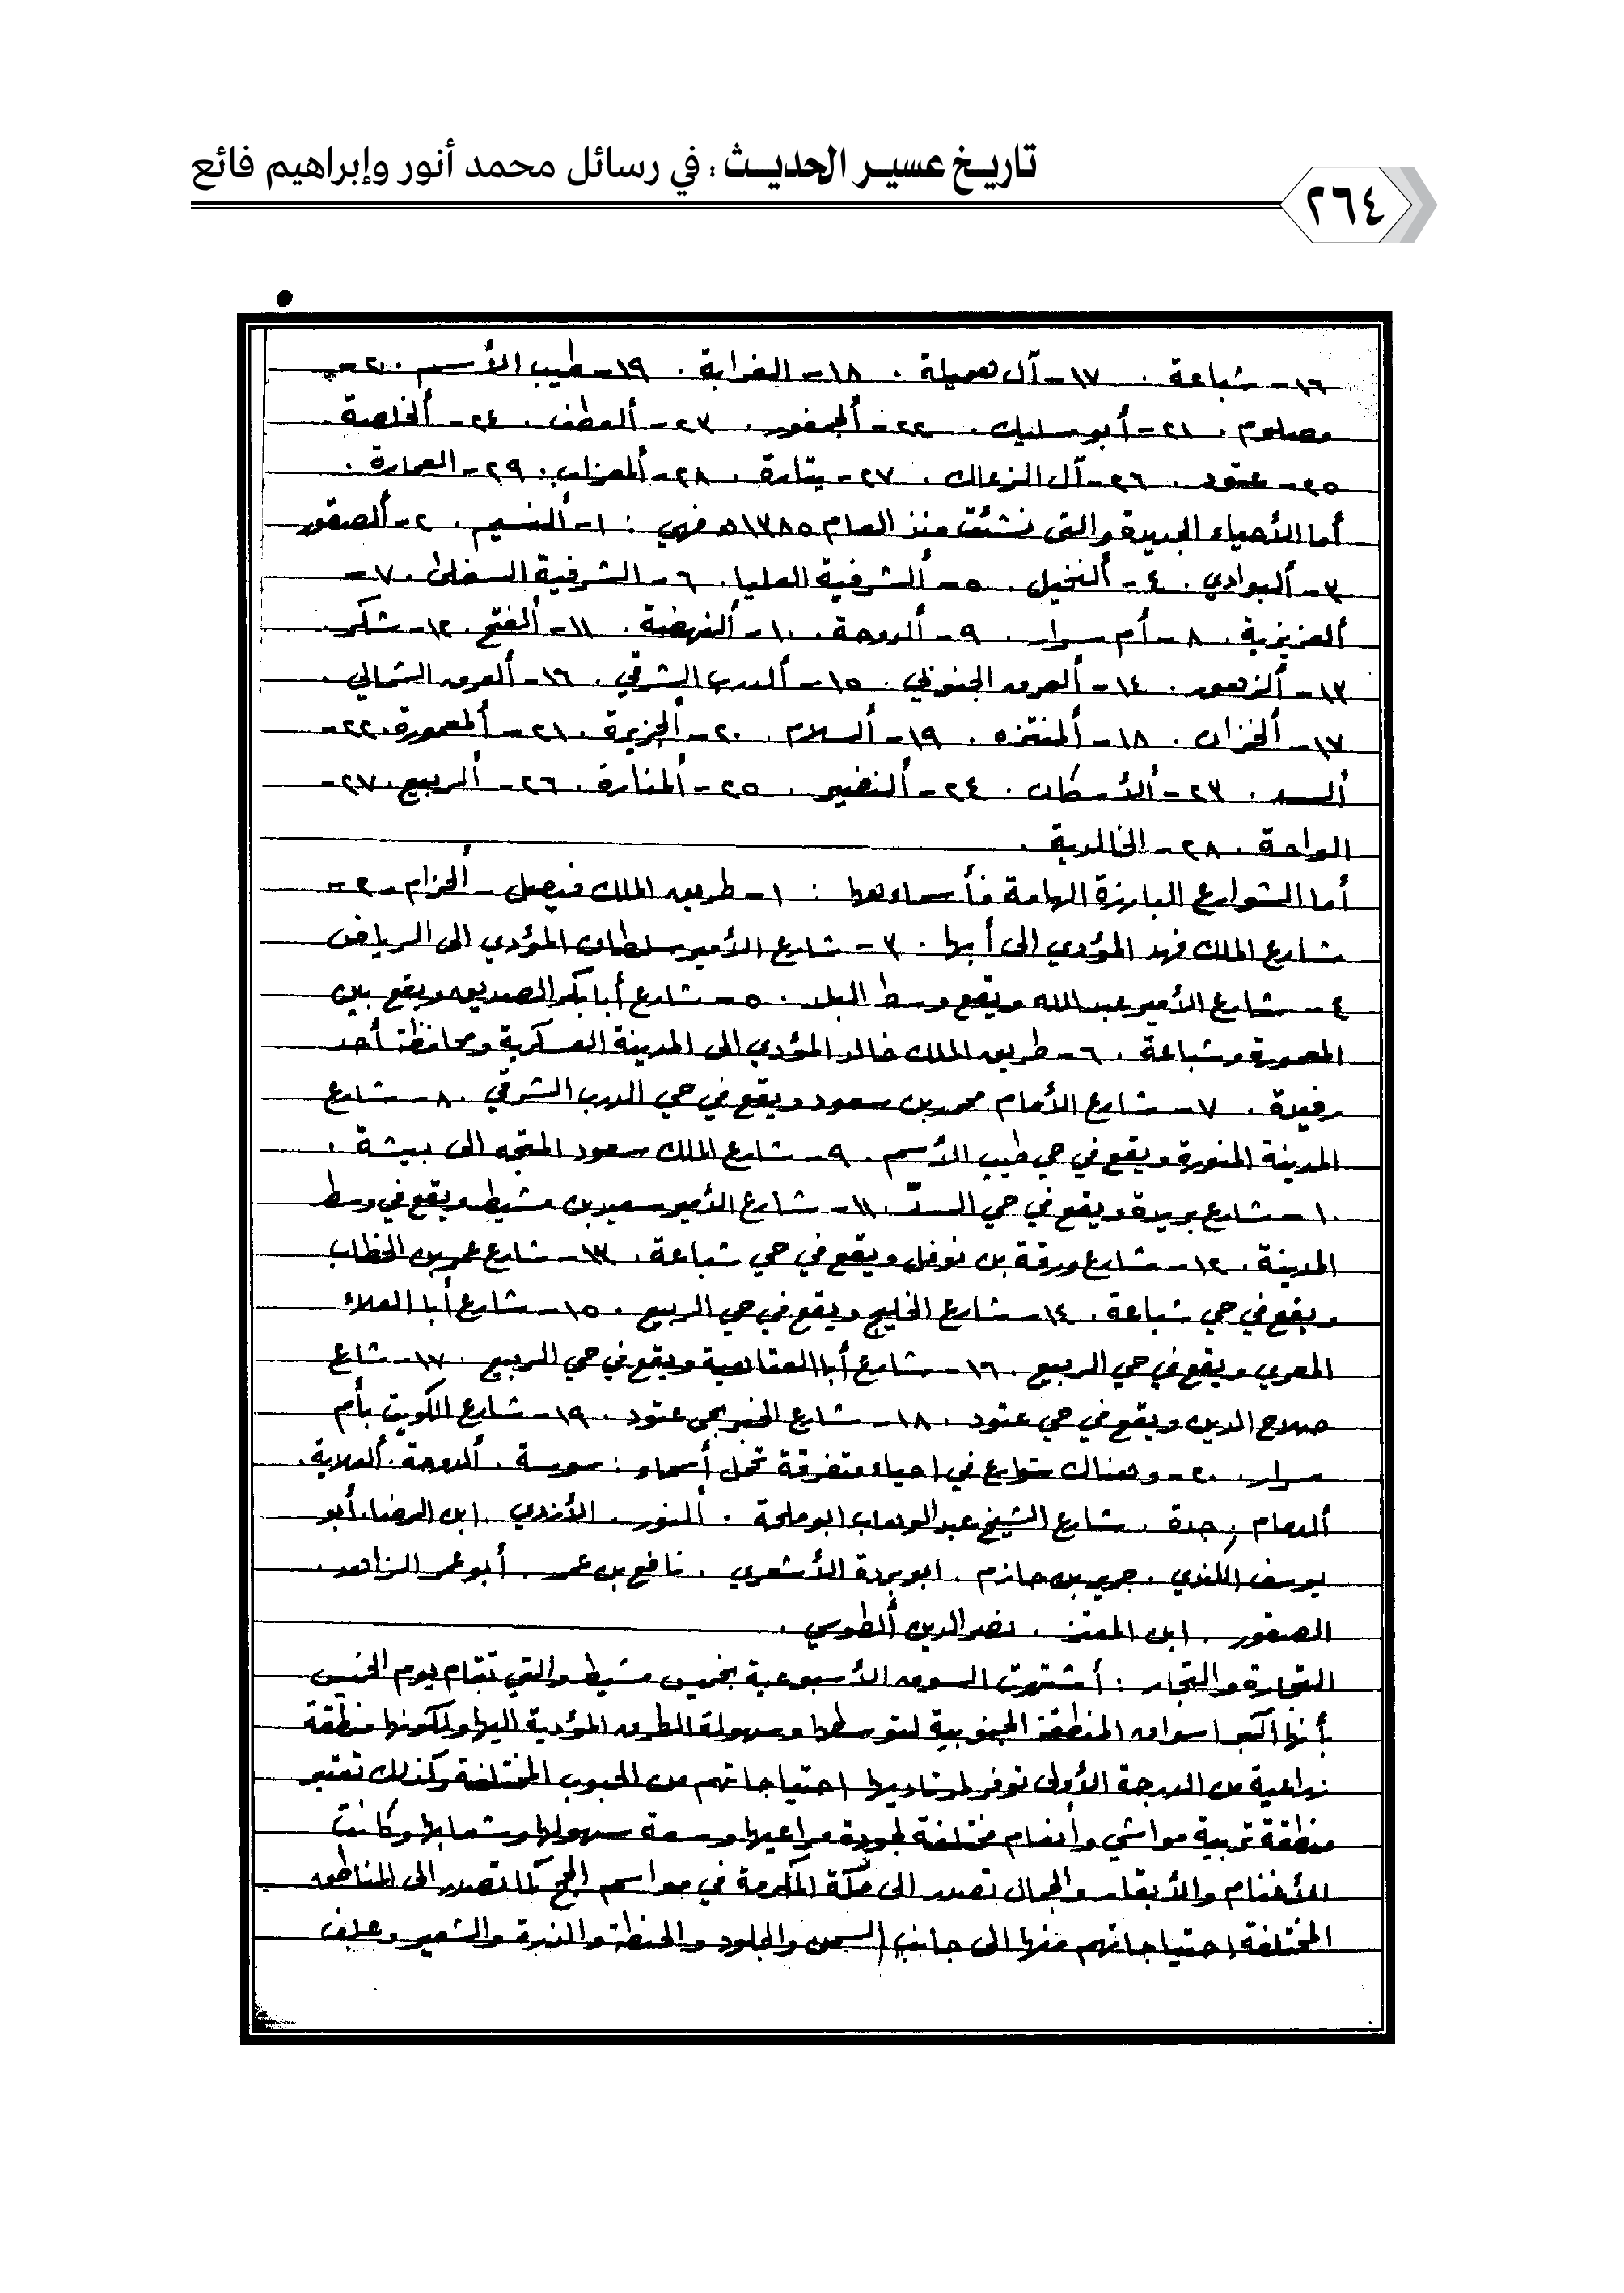 تاريخ عسير الحديث : في رسائل محمد أنور وإبراهيم فائع
٢٦٤
١٦- شباعة . ١٧- آل هميلة . ١٨- الغرابة . ١٩- طيب الأسم . ٢٠-
مصلوم . ٢١- أبو سليك . ٢٢- ألجمفور . ٢٣- ألعطف . ٢٤- ألخلصة .
٢٥- عتود . ٢٦- آل الزعلك . ٢٧- يتارة . ٢٨- ألمعزاب . ٢٩- العمارة .
أما الأحياء الجديدة والتي نشئت منذ العام ١٣٨٥هـ فهي : ١- ألنسيم . ٢- ألصقور
٣- ألبوادي . ٤- ألنخيل . ٥- ألشرفية العليا . ٦- الشرفية السفلى . ٧-
ألعزيزية . ٨- أم سرار . ٩- ألدوحة . ١٠- ألنهضة . ١١- ألفتح . ١٢- شكر .
١٣- ألزهور . ١٤- ألعرق الجنوبي . ١٥- ألدرب الشرقي . ١٦- ألعرق الشمالي .
١٧- ألخزان . ١٨- ألمنتزه . ١٩- ألسلام . ٢٠- ألجزيرة . ٢١- ألمعمورة . ٢٢-
ألسد . ٢٣- ألأسكان . ٢٤- ألنضير . ٢٥- ألمنارة . ٢٦- ألربيع . ٢٧-
الواحة . ٢٨- الخالدية .
أما الشوارع البارزة الهامة فأسماءها : ١- طريق الملك فيصل - ألحزام - ٢-
شارع الملك فهد المؤدي الى أبها . ٣- شارع الأمير سلطان المؤدي الى الرياض
٤- شارع الأمير عبد الله ويقع وسط البلد . ٥- شارع أبا بكر الصديق ويقع بين
المعمورة وشباعة . ٦- طريق الملك خالد المؤدي الى المدينة العسكرية ومحافظة أحد
رفيدة . ٧- شارع الأمام محمد بن سعود ويقع في حي الدرب الشرقي . ٨- شارع
المدينة المنورة ويقع في حي طيب الأسم . ٩- شارع الملك سعود المتجه الى بيشة .
١٠- شارع بريدة ويقع في حي السدّ . ١١- شارع الأمير سعيد بن مشيط ويقع في وسط
المدينة . ١٢- شارع ورقة بن نوفل ويقع في حي شباعة . ١٣- شارع عمر بن الخطاب
ويقع في حي شباعة . ١٤- شارع الخليج ويقع في حي الربيع . ١٥- شارع أبا العلاء
المعري ويقع في حي الربيع . ١٦- شارع أبا العتاهية ويقع في حي الربيع . ١٧- شاع
صلاح الدين ويقع في حي عتود . ١٨- شارع الخبر بحي عتود . ١٩- شارع الكويت بأم
سرار . ٢٠- وهناك شوارع في احياء متفرقة تحمل أسماء : سوسة . ألدوحة . ألعلاية .
ألدمام . جدة . شارع الشيخ عبد الوهاب ابو ملحة . ألنور . الأزدي . ابن الرضا . أبو
يوسف الكندي . جرير بن حازم . ابو بردة الأشعري . نافع بن عمر . أبو عمر الزاهد .
الصقور . ابن المعتز . نصر الدين ألطوسي .
التجارة والتجار : أشتهرت السوق الأسبوعية بخميس مشيط والتي تقام يوم الخميس
بأنها اكبر اسواق المنطقة الجنوبية لتوسطها وسهولة الطرق المؤدية اليها ولكونها منطقة
زراعية من الدرجة الأولى توفر لمرتاديها احتياجاتهم من الحبوب المختلفة وكذلك تعتبر
منطقة تربية مواشي وأنعام مختلفة لجودة مراعيها وسعة سهولها وشعابها وكانت
الأغنام والأبقار والجمال تصدر الى مكة المكرمة في مواسم الحج كما تصدر الى المناطق
المختلفة احتياجاتهم منها الى جانب السمن والجلود والحنطة والذرة والشعير وعلف